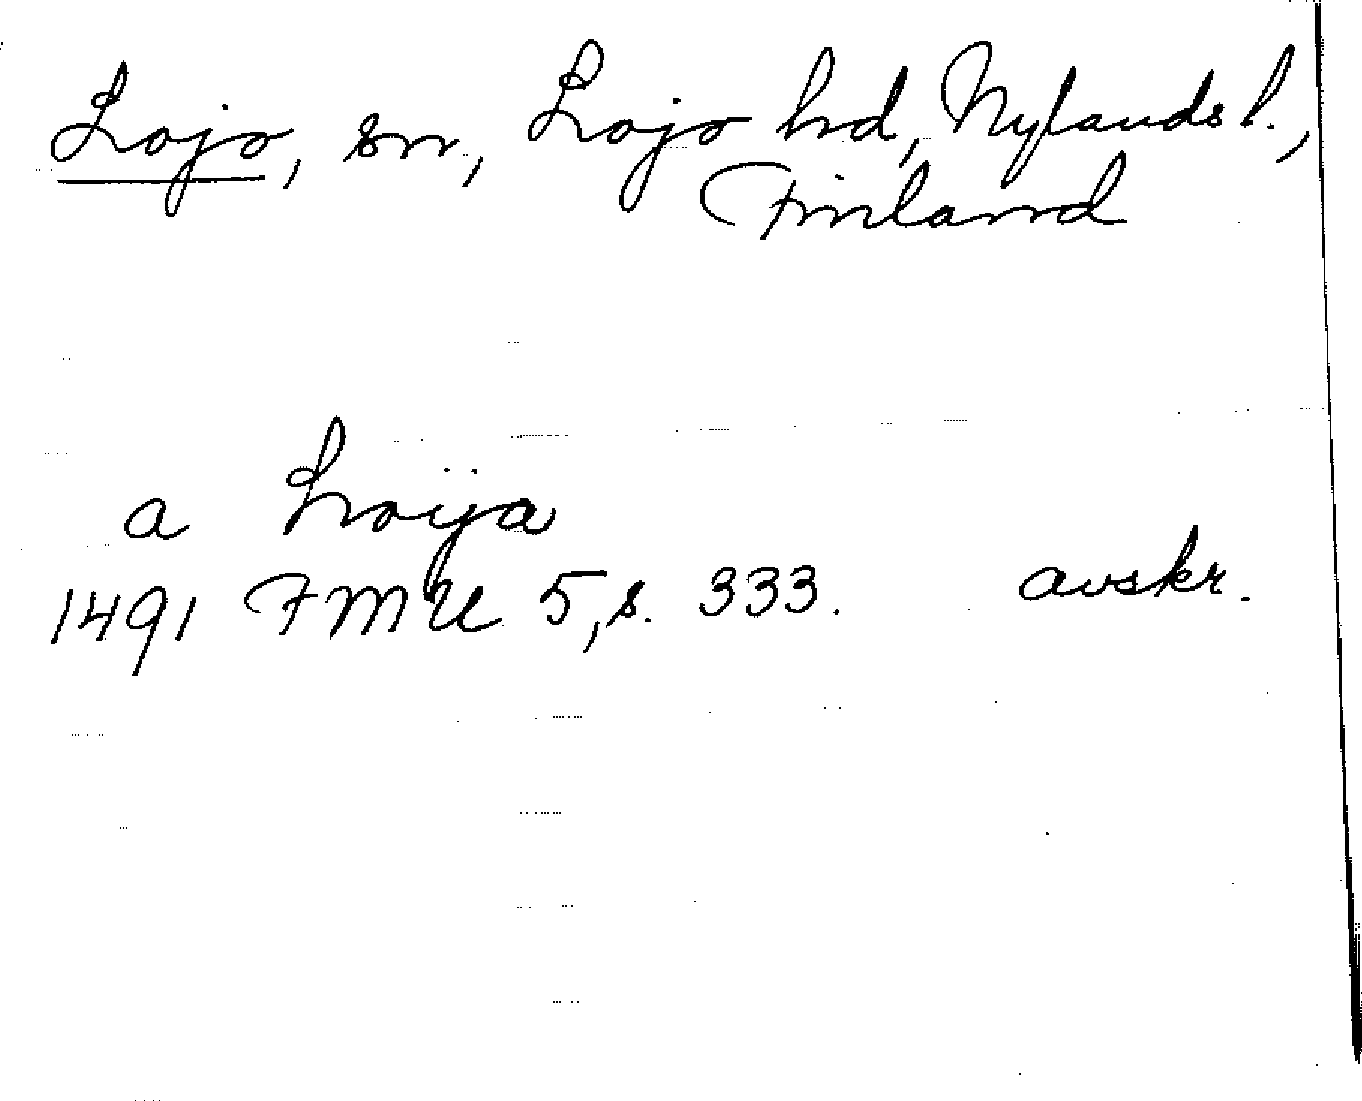 Lojo, sn, Lojo hd, Nylands l.,
Finland
a Loÿa
1491 FMU 5, s. 333. avskr.